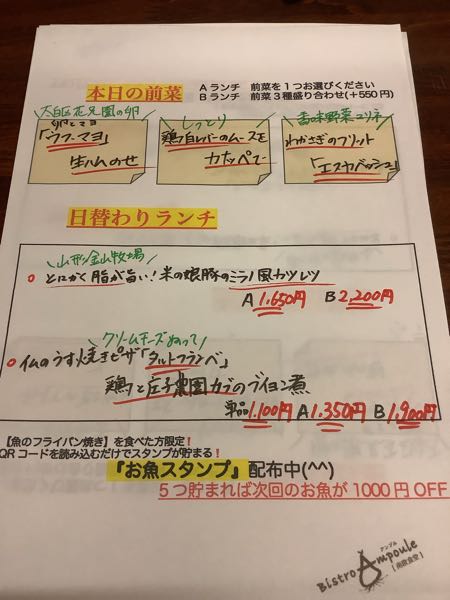 本日の前菜
Aランチ 前菜を1つお選びください
Bランチ 前菜3種盛り合わせ(+550円)
太白区花兄園の卵
卵とマヨ
「ウフ・マヨ」
生ハムのせ
しっとり
鶏白レバーのムースを
カナッペで
香味野菜マリネ
わかさぎのフリット
「エスカベッシュ」
日替わりランチ
山形金山牧場
とにかく脂が旨い!米の娘豚のミラノ風カツレツ
A 1,650円 B 2,200円
クリームチーズぬって
仏のうす焼きピザ「タルトフランベ」
鶏と庄子農園カブのブイヨン煮
単品1,100円 A1,350円 B1,900円
【魚のフライパン焼き】を食べた方限定!
QRコードを読み込むだけでスタンプが貯まる!
『お魚スタンプ』配布中(^^)
5つ貯まれば次回のお魚が1000円OFF
アンプル
Bistro Ampoule